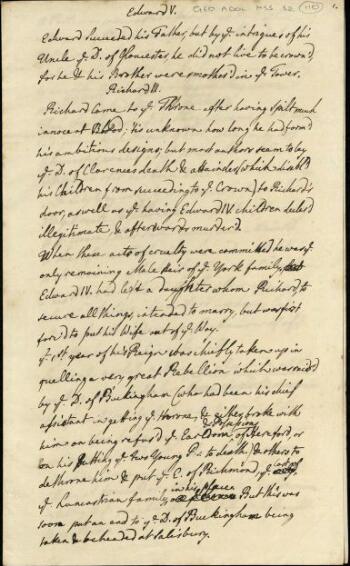 Edward V.
GEO ADD MSS 32 (110)
Edward succeeded his Father, but by ye intrigues of his
Uncle ye D. of Gloucester, he did not live to be crown'd,
for he & his Brother were smother'd in ye Tower.
Richard III.
Richard came to ye Throne after having spilt much
innocent Blood; 'tis unknown how long he had form'd
his ambitious designs; but most authors seem to lay
ye D. of Clarences death & attainder (which disabl'd
his Children from succeeding to ye Crown) to Richard's
door, as well as ye having Edward IV. children declar'd
illegitimate & afterwards murder'd.
When these acts of cruelty were committed he was ye
only remaining Male Heir of ye York family,
Edward IV. had left a daughter whom Richard to
secure all things, intended to marry, but was first
forc'd to put his Wife out of ye Way.
ye 1st year of his Reign was chiefly taken up in
quelling a very great Rebellion which was rais'd
by ye D. of Buckingham (who had been his chief
assistant in getting ye Throne, & either broke with
him on being refus'd ye Earldom & Estates of Hereford, or
on his putting ye two Young P.s to death) & others to
dethrone him & put ye E. of Richmond, ye
ye Lancastrian family in his place But this was
soon put an end to ye D. of Buckingham being
taken & beheaded at Salisbury.